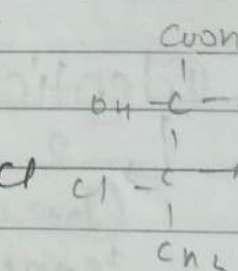 COOH
OH - C -
Cl Cl - C -
CH3